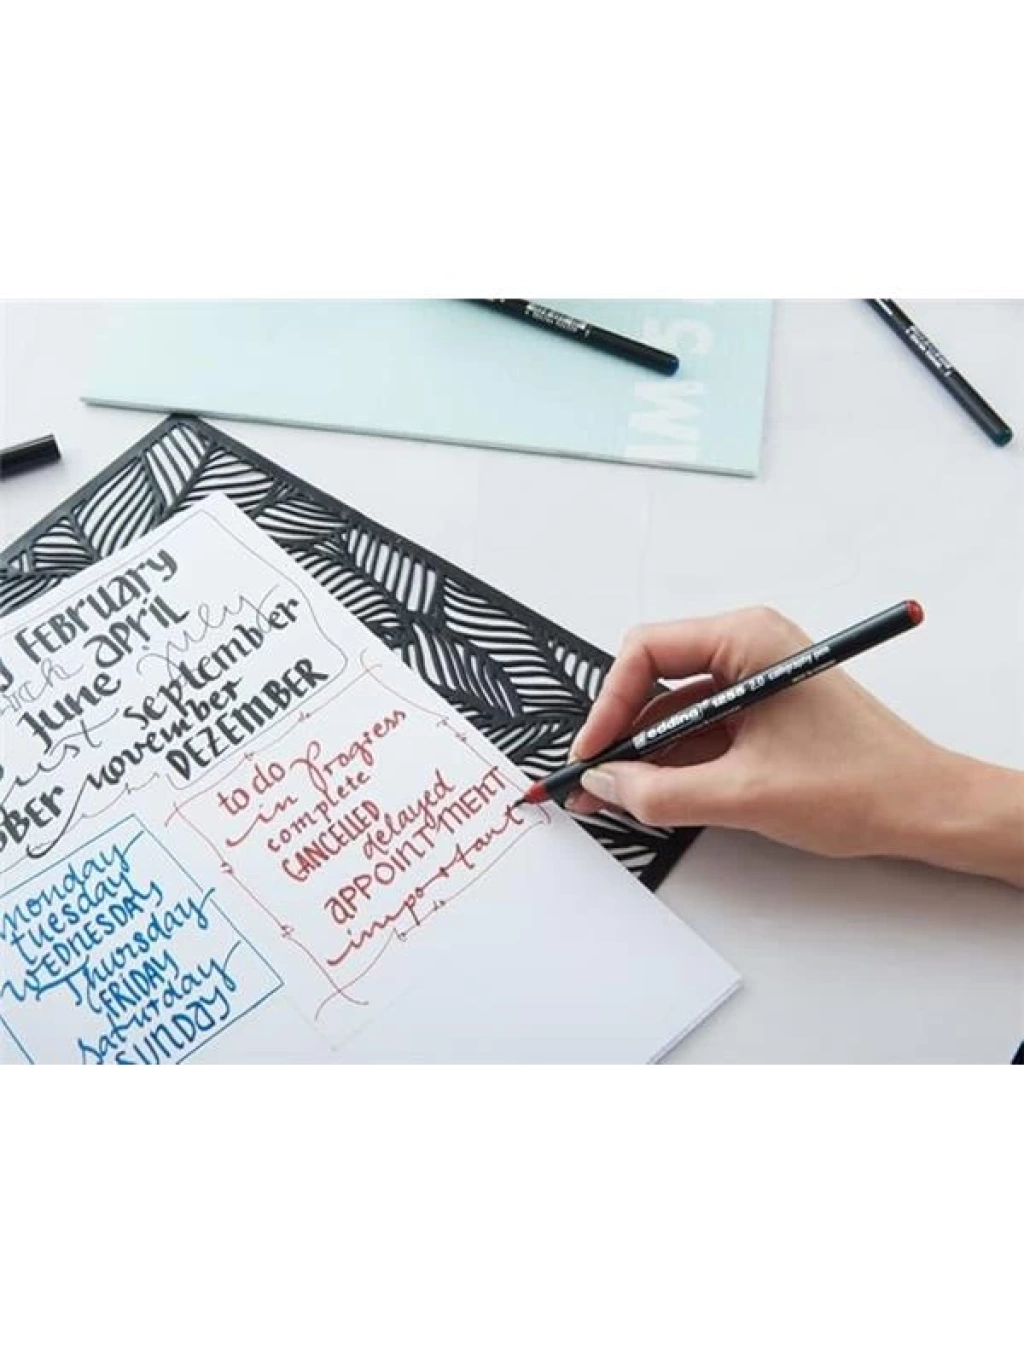 February
april
July
June
september
november
DEZEMBER
monday
tuesday
WEDNESDAY
Thursday
FRIDAY
saturday
SUNDAY
to do
in progress
complete
CANCELLED
delayed
APPOINTMENT
important
edding 1255 2.0 calligraphy pen